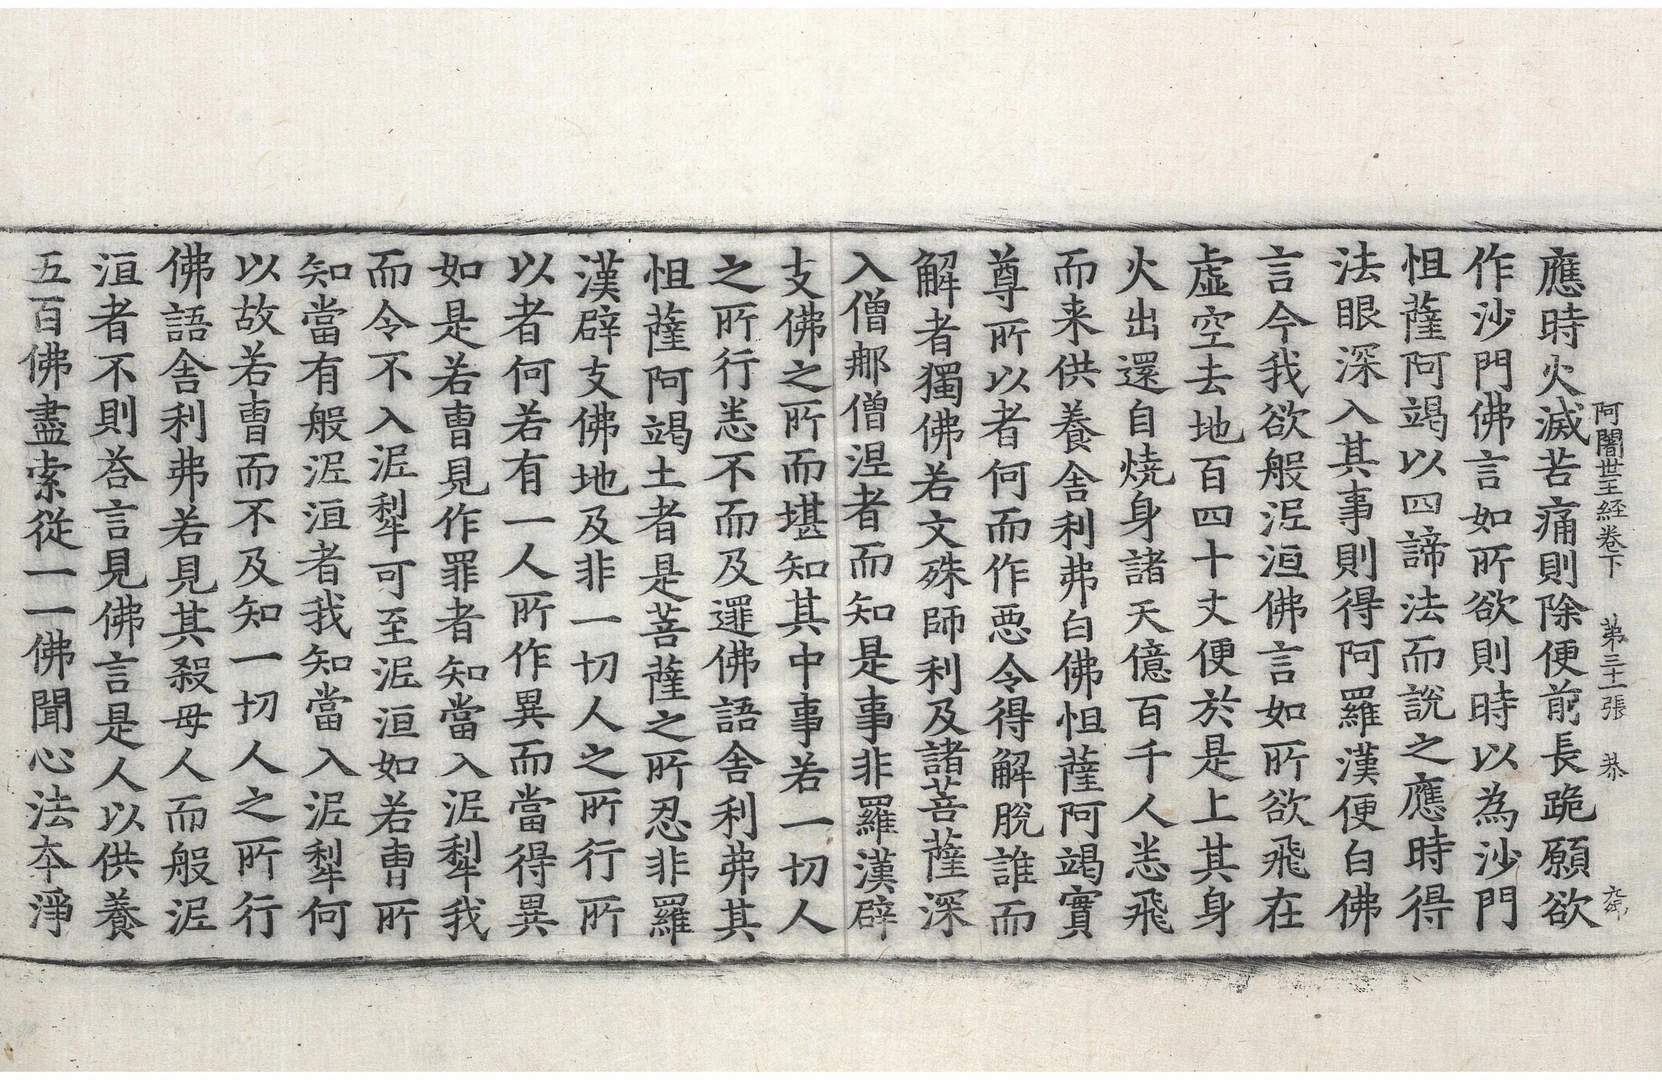 阿闍世王経卷下 第三十一張 恭
應時火滅苦痛則除便前長跪願欲
作沙門佛言如所欲則時以為沙門
怛薩阿竭以四諦法而說之應時得
法眼深入其事則得阿羅漢便白佛
言今我欲般泥洹佛言如所欲飛在
虛空去地百四十丈便於是上其身
火出還自燒身諸天億百千人悉飛
而来供養舍利弗白佛怛薩阿竭實
尊所以者何而作惡令得解脫誰而
解者獨佛若文殊師利及諸菩薩深
入僧那僧涅者而知是事非羅漢辟
支佛之所而堪知其中事若一切人
之所行悉不而及邏佛語舍利弗其
怛薩阿竭土者是菩薩之所忍非羅
漢辟支佛地及非一切人之所行所
以者何若有一人所作異而當得異
如是若曹見作罪者知當入泥犁我
而令不入泥犁可至泥洹如若曹所
知當有般泥洹者我知當入泥犁何
以故若曹而不及知一切人之所行
佛語舍利弗若見其殺母人而般泥
洹者不則荅言見佛言是人以供養
五百佛盡索從一一佛聞心法本淨